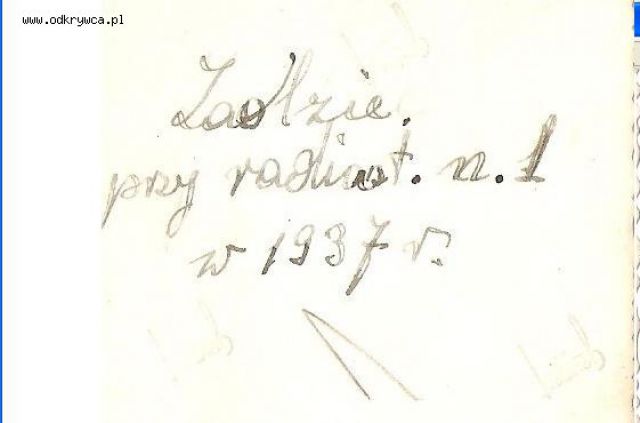 www.odkrywca.pl
Zaolzie.
przy radiost. n. 1
w 1937 r.